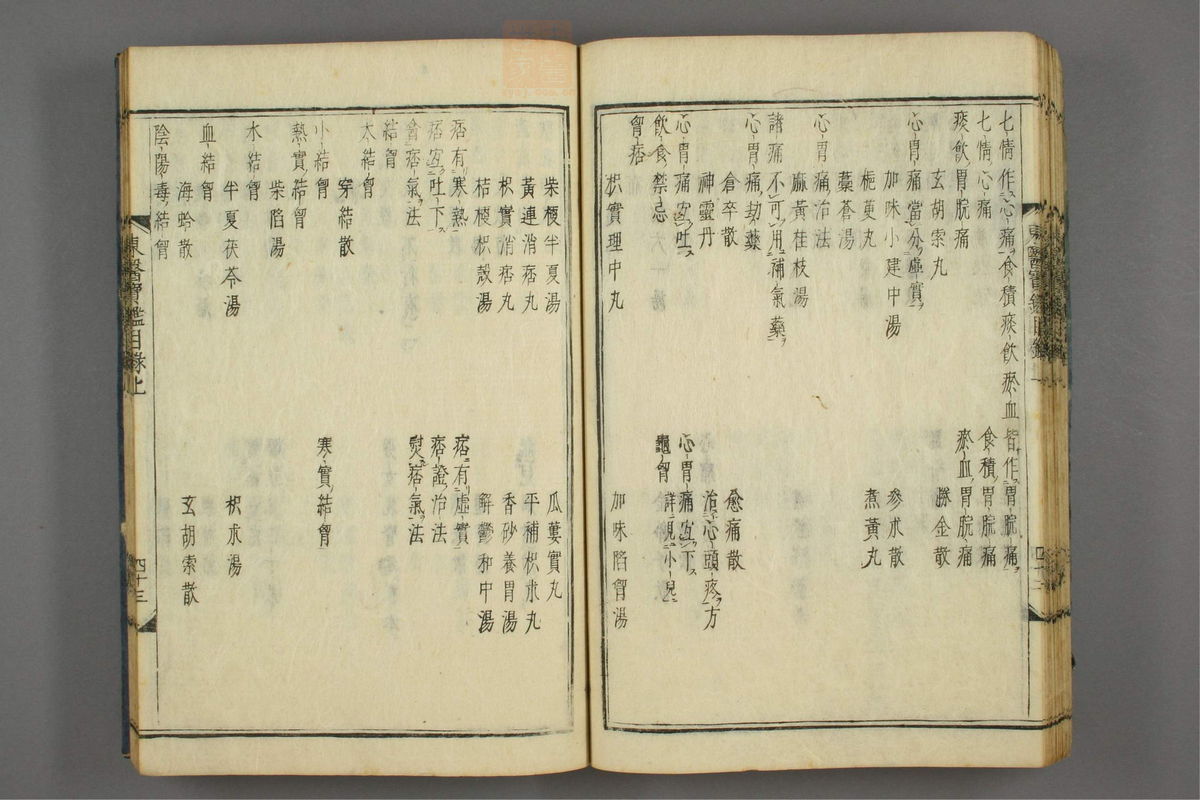 七情作心痛食積痰飲瘀血皆作胃脘痛
七情心痛 食積胃脘痛
痰飲胃脘痛 瘀血胃脘痛
玄胡索丸 勝金散
心胃痛當分虛實
加味小建中湯 參朮散
梔萸丸 煮黃丸
藁蒼湯
心胃痛治法
麻黃桂枝湯
諸痛不可用補氣藥
心胃痛劫藥
倉卒散 愈痛散
神靈丹 治心頭疼方
心胃痛宜吐 心胃痛宜下
飲食禁忌 龜胷詳見小兒
胷痞
枳實理中丸 加味陷胷湯
柴梗半夏湯 瓜蔞實丸
黃連消痞丸 平補枳朮丸
枳實消痞丸 香砂養胃湯
桔梗枳殼湯 解鬱和中湯
痞有寒熱 痞有虛實
痞宜吐下 痞證治法
痞氣法 熨痞氣法
結胷
大結胷
穿結散
小結胷 寒實結胷
熱實結胷
柴陷湯
水結胷
半夏茯苓湯 枳朮湯
血結胷
海蛤散 玄胡索散
陰陽毒結胷
東醫寶鑑目錄上 四十三